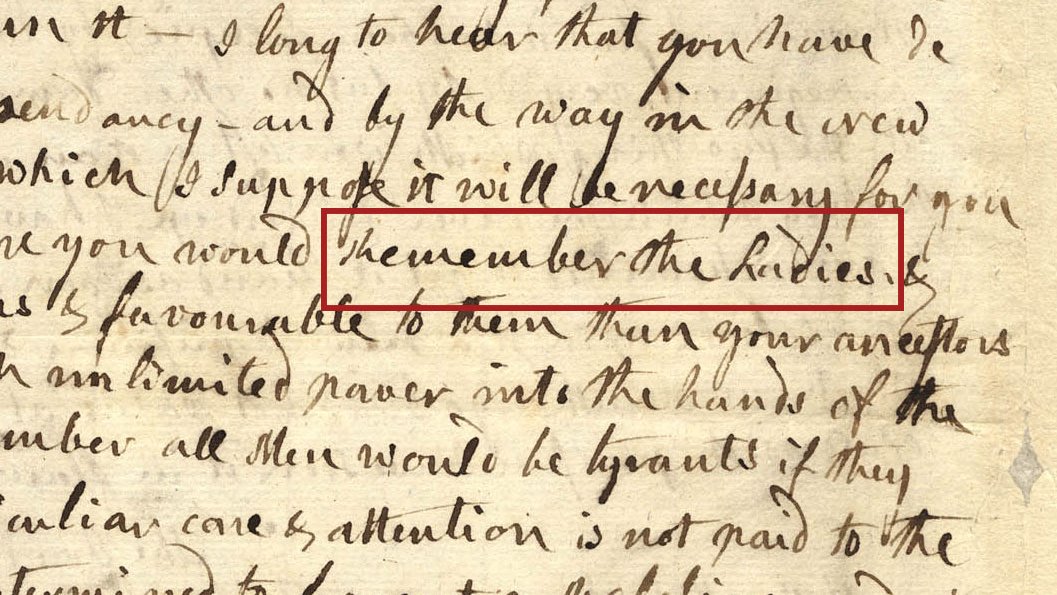 in it — I long to hear that you have de
pendancy — and by the way in the new
which I suppose it will be necessary for you
re you would Remember the Ladies, &
us & favourable to them than your ancestors
h unlimited power into the hands of the
mber all Men would be tyrants if they
culiar care & attention is not paid to the